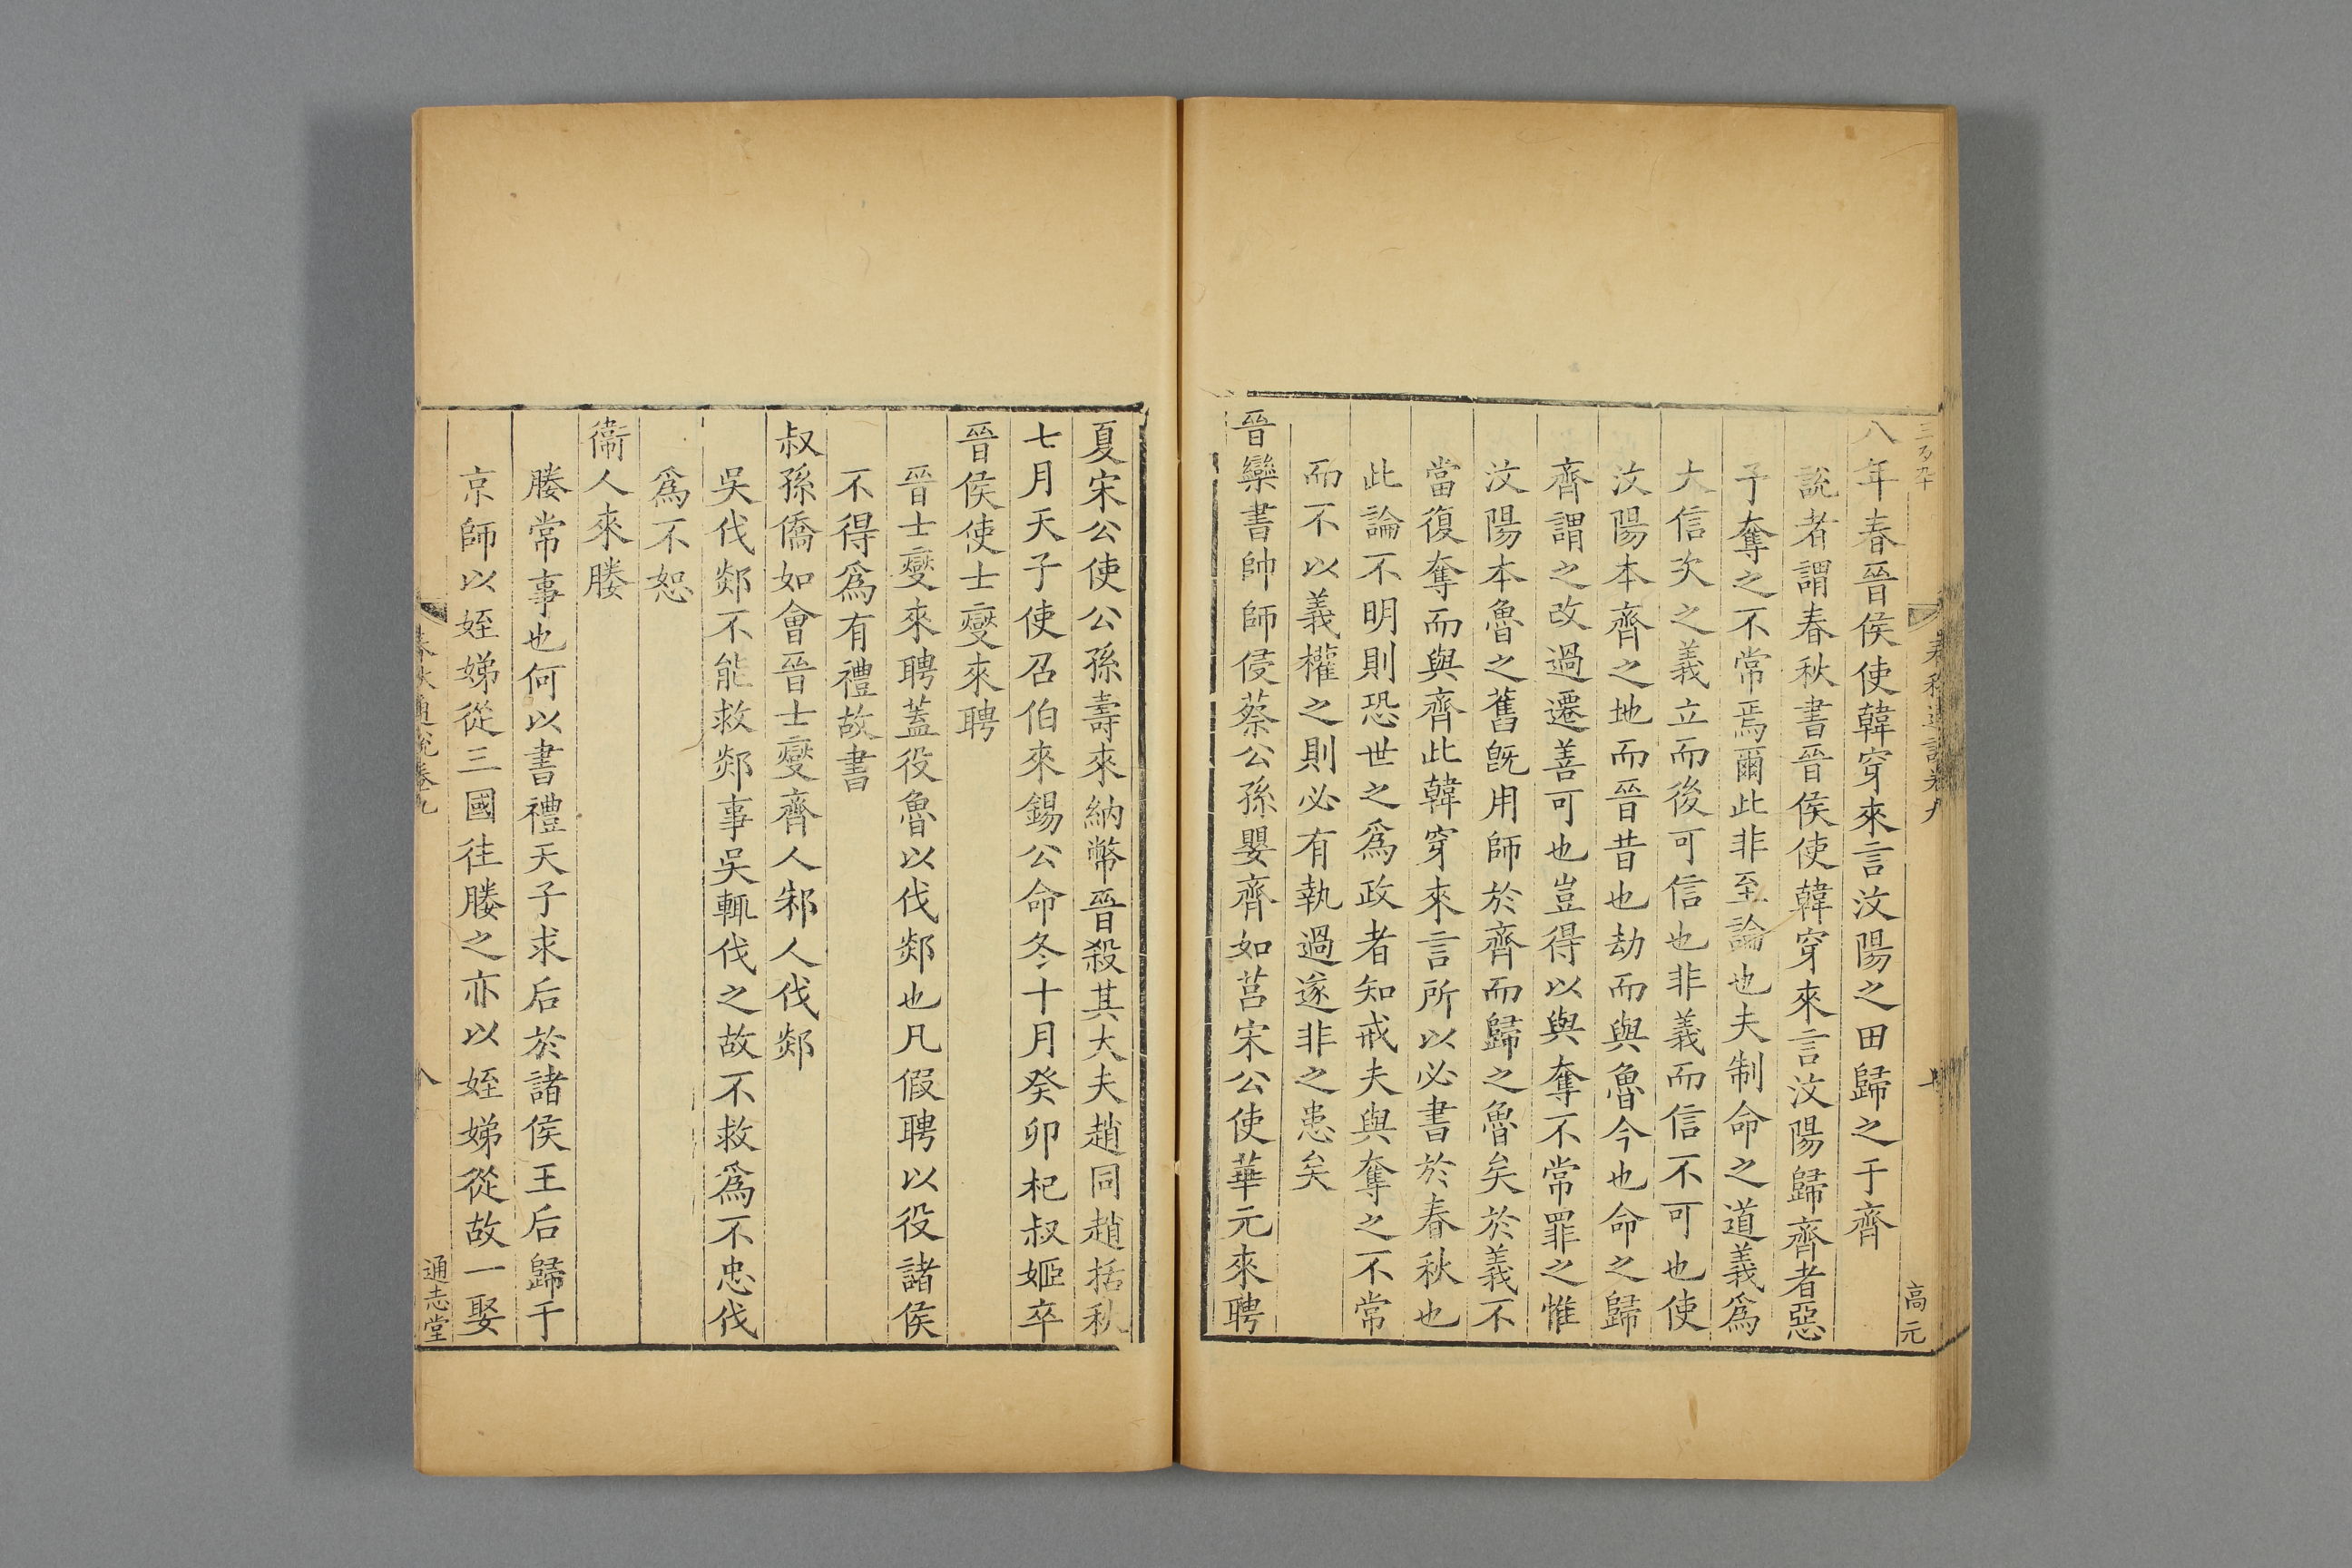 八年春晉侯使韓穿來言汶陽之田歸之于齊
說者謂春秋書晉侯使韓穿來言汶陽歸齊者惡
予奪之不常焉爾此非至論也夫制命之道義爲
大信次之義立而後可信也非義而信不可也使
汶陽本齊之地而晉昔也劫而與魯今也命之歸
齊謂之改過遷善可也豈得以與奪不常罪之惟
汶陽本魯之舊旣用師於齊而歸之魯矣於義不
當復奪而與齊此韓穿來言所以必書於春秋也
此論不明則恐世之爲政者知戒夫與奪之不常
而不以義權之則必有執過遂非之患矣
晉欒書帥師侵蔡公孫嬰齊如莒宋公使華元來聘
高元
夏宋公使公孫壽來納幣晉殺其大夫趙同趙括秋
七月天子使召伯來錫公命冬十月癸卯杞叔姬卒
晉侯使士燮來聘
晉士燮來聘蓋役魯以伐郯也凡假聘以役諸侯
不得爲有禮故書
叔孫僑如會晉士燮齊人邾人伐郯
吳伐郯不能救郯事吳輒伐之故不救爲不忠伐
爲不恕
衞人來媵
媵常事也何以書禮天子求后於諸侯王后歸于
京師以姪娣從三國往媵之亦以姪娣從故一娶
春秋通說卷九
八
通志堂